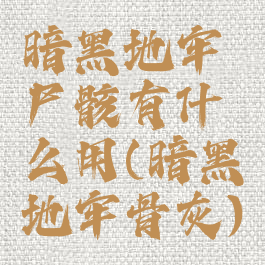 暗黑地牢
尸骸有什
么用(暗黑
地牢骨灰)